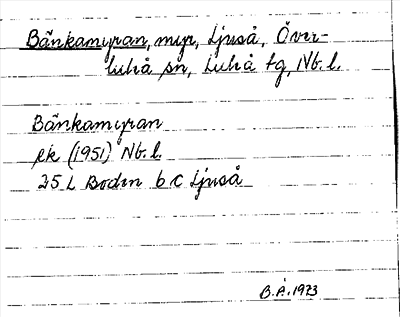 Bänkamyran, myr, Ljuså, Över-
luleå sn, Luleå tg, Nb. l.
Bänkamyran
ek (1951) Nb. l.
25 L Boden b c Ljuså
B.Å. 1973